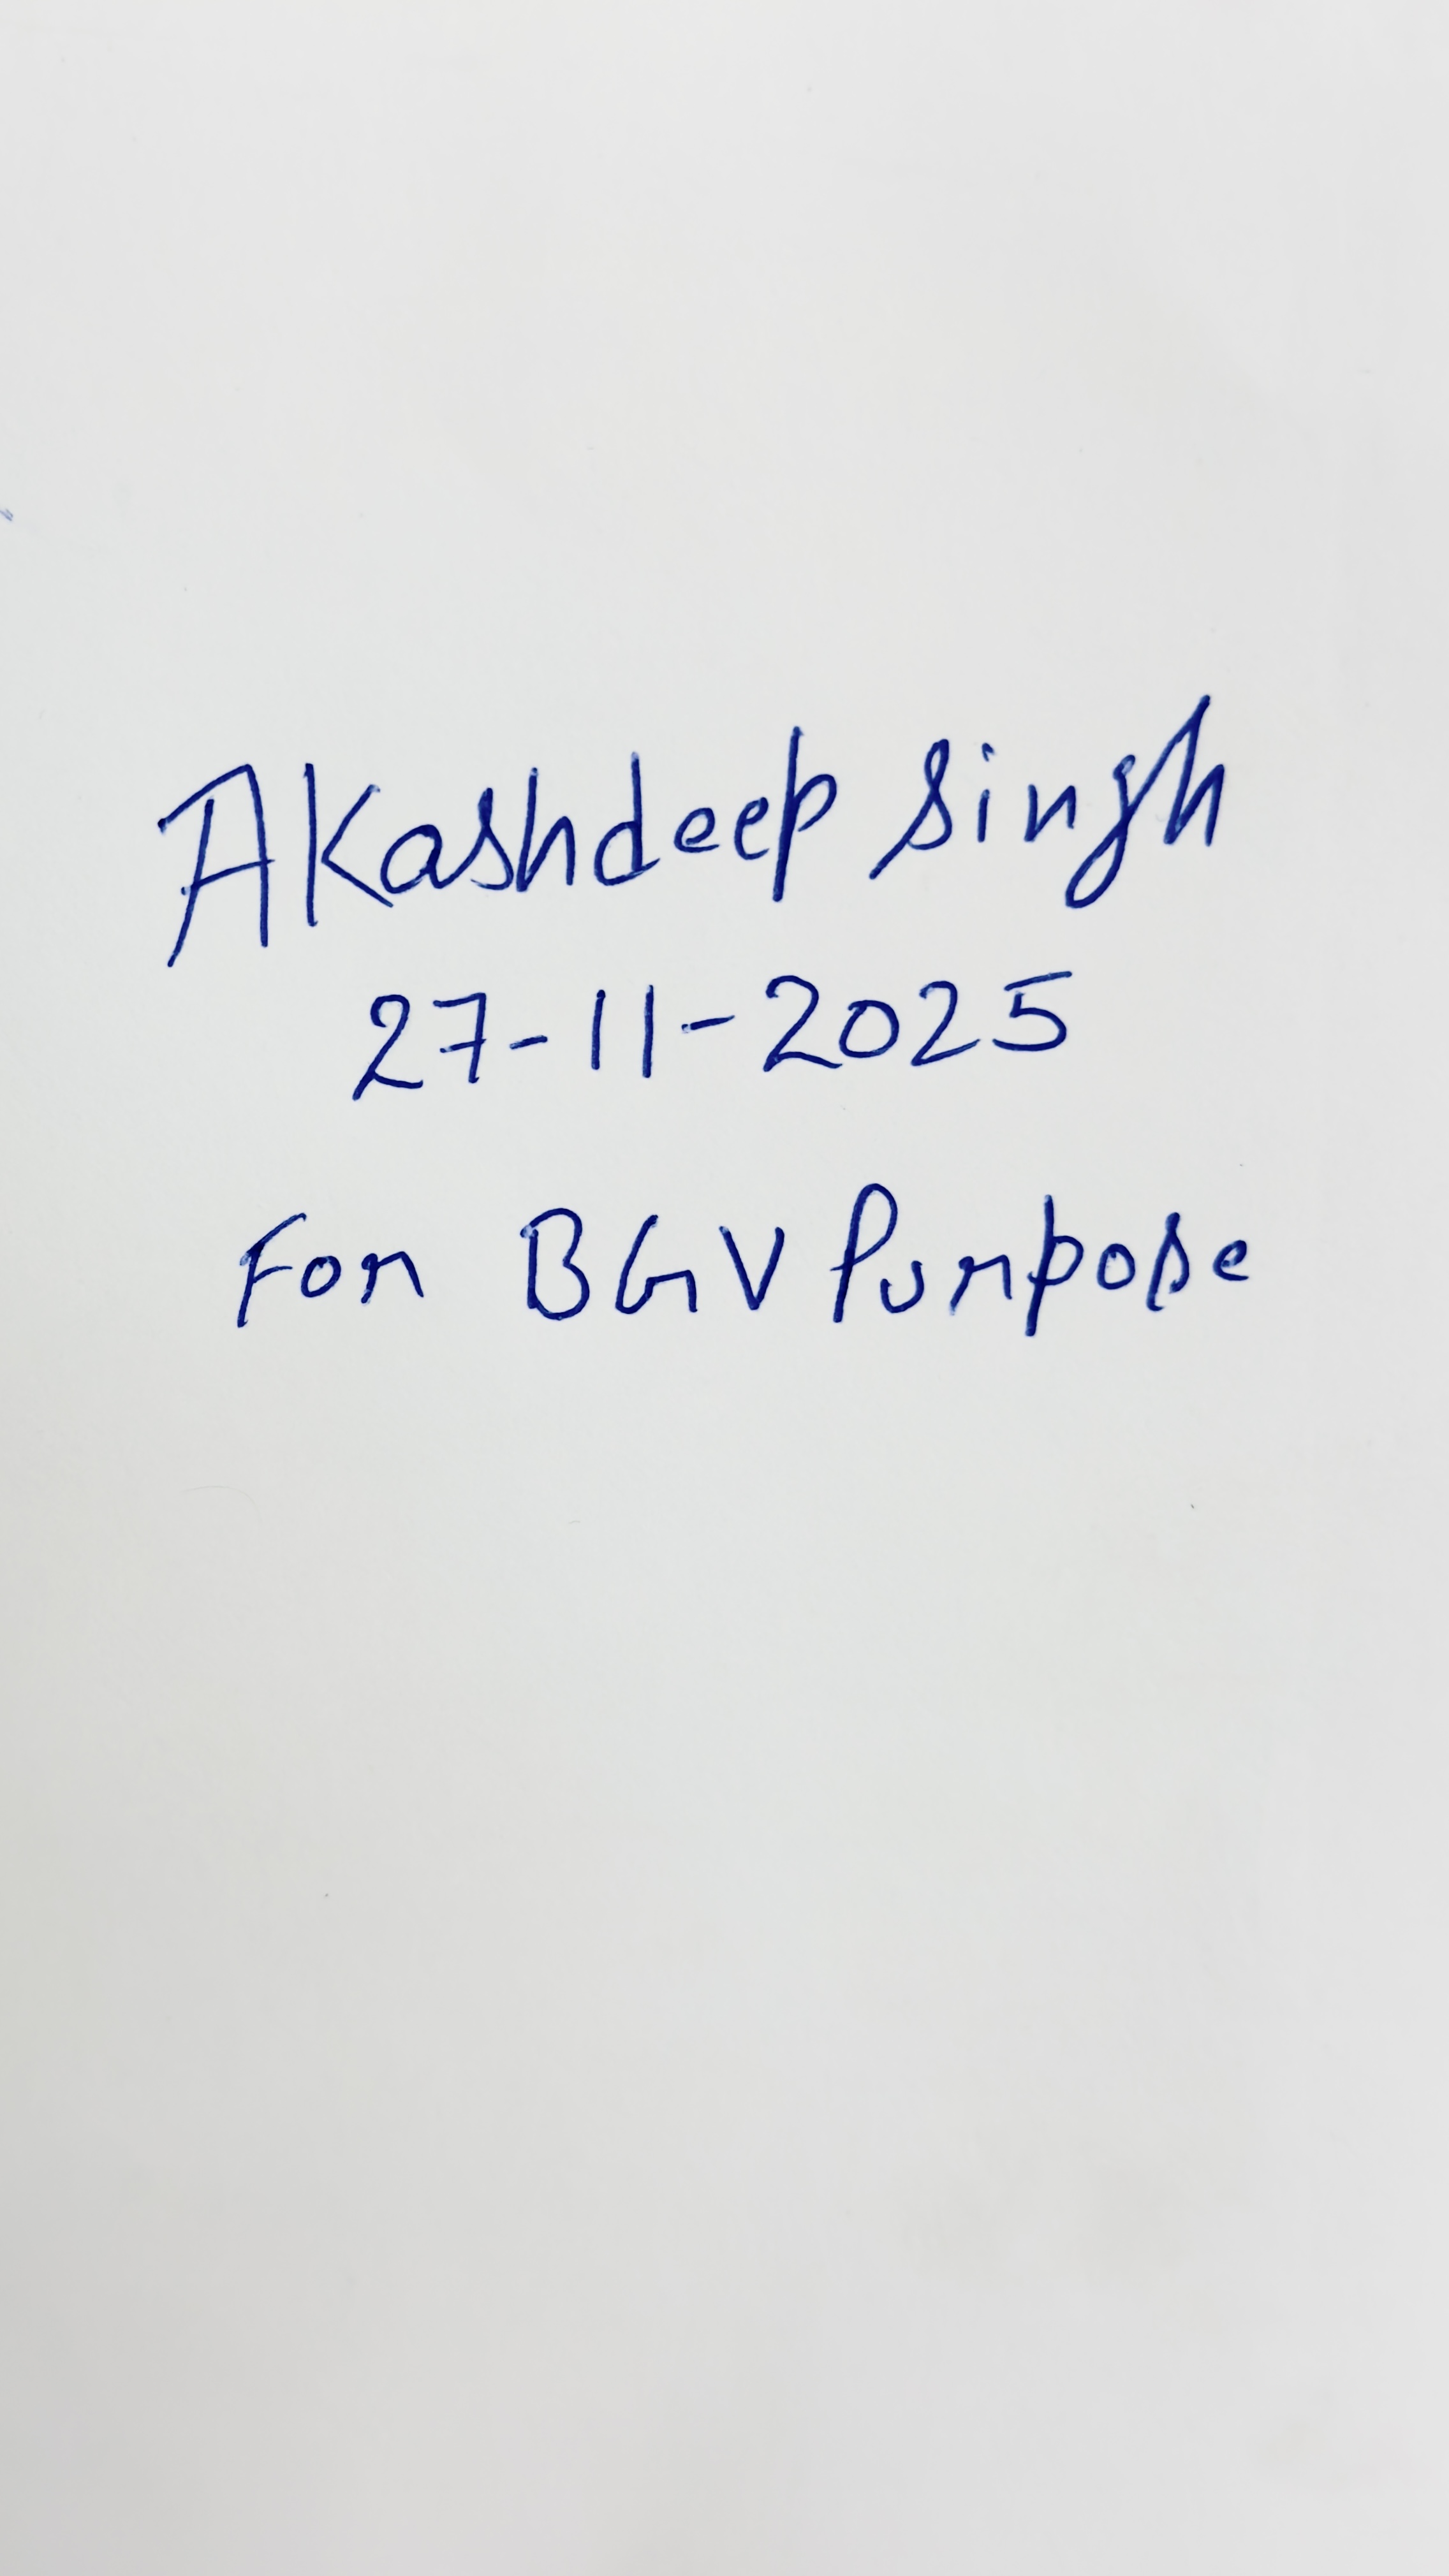 Akashdeep Singh
27-11-2025
For BGV Purpose